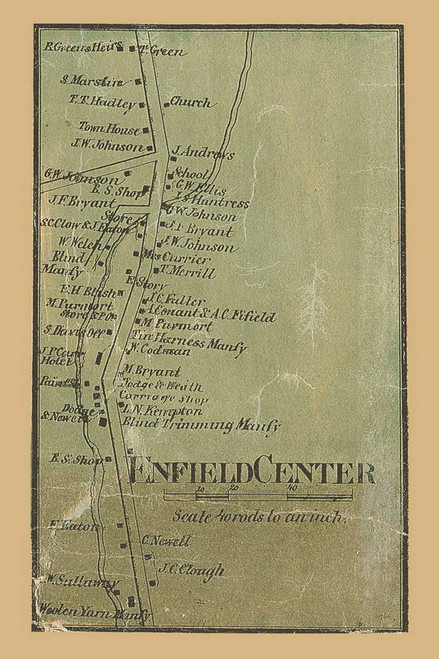 R. Greens Heirs
T. Green
S. Marston
T. T. Hadley
Church
Town House
J. W. Johnson
J. Andrews
G. W. Johnson
School
B. S. Shop
G. W. Ellis
J. F. Bryant
S. Huntress
Store
G W Johnson
S. C. Clow & J. Eaton
J. F. Bryant
W. Welch
J. W. Johnson
Blind
Manfy
Mrs Currier
T. Merrill
F. Story
E. H. Blish
J. C. Fuller
M. Purmort
Store & P.O.
& A. C. Fifield
M. Purmort
S. Davis Off
Tin Harness Manfy
W. Codman
J. P. Carr
Hotel
M. Bryant
Dodge & Heath
Carriage Shop
Dodge
& Newell
N. Kempton
Blind Trimming Manfy
B. S. Shop
ENFIELD CENTER
10 20 40
Scale 40 rods to an inch.
E. Eaton
C. Newell
J. C. Clough
W. Sallaway
Woolen Yarn Manfy